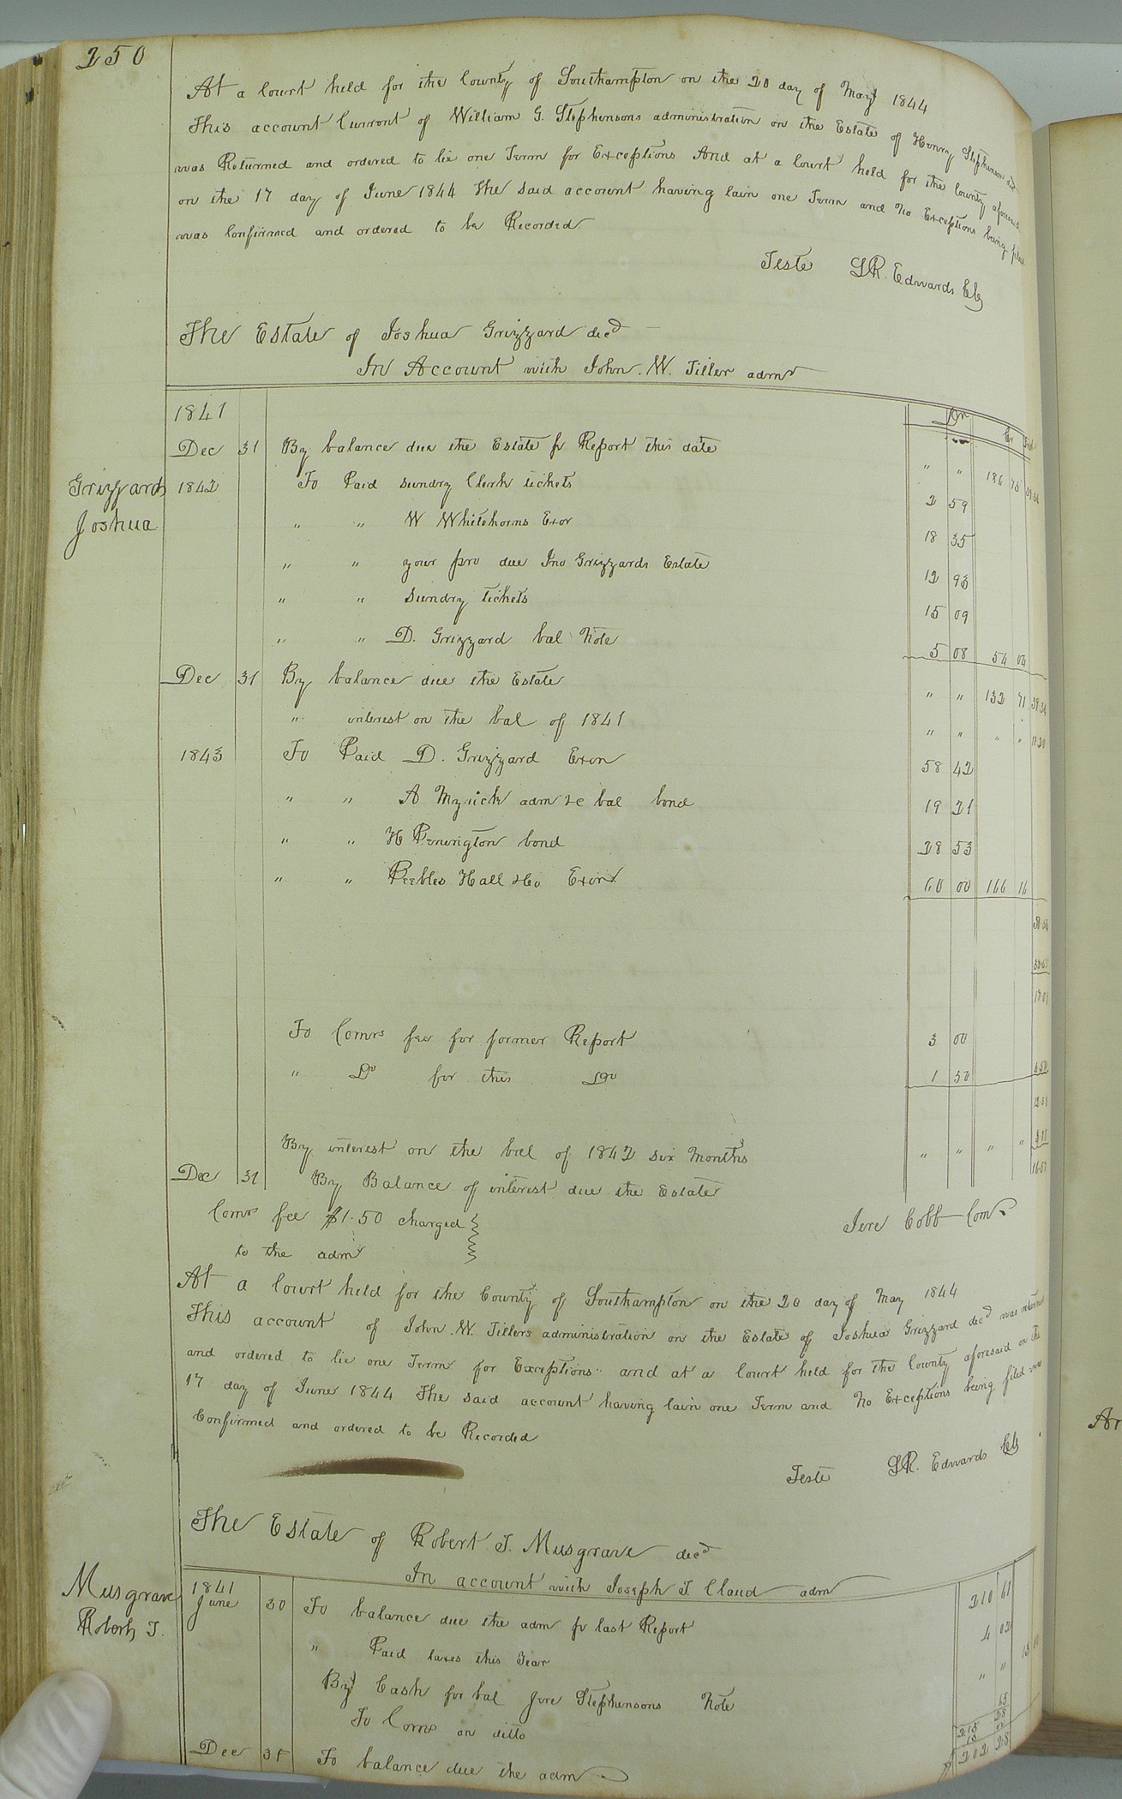 250
At a Court held for the County of Southampton on the 20 day of May 1844
This account Current of William G. Stephensons administration on the Estate of Henry Stephenson decd
was Returned and ordered to lie one Term for Exceptions And at a Court held for the County aforesaid
on the 17 day of June 1844 The said account having lain one Term and No Exceptions being filed
was Confirmed and ordered to be Recorded
Teste LR. Edwards Clk
The Estate of Joshua Grizzard decd
In Account with John. W. Tiller admr
Grizzard
Joshua
1841 Dr Cr
Dec 31 By balance due the Estate pr Report this date " " 186 75
1842 To Paid sundry Clerk tickets 2 59
" " W Whitehorns Exor 18 35
" " your pro due Jno Grizzards Estate 12 93
" " sundry tickets 15 09
" " D. Grizzard bal Note 5 08 54 04
Dec 31 By balance due the Estate " " 132 71
" interest on the bal of 1841 " " " "
1843 To Paid D. Grizzard Exon 58 42
" " A Myrick adm &c bal bond 19 21
" " H Penington bond 28 53
" " Peebles Hall &Co Exon 60 00 166 16
To Comrs fee for former Report 3 00
" Do for this Do 1 50 4.50
By interest on the bal of 1842 six Months " " " "
Dec 31 By Balance of interest due the Estate
Comrs fee $1.50 charged
to the admr
Jere Cobb Comr
At a Court held for the County of Southampton on the 20 day of May 1844
This account of John. W. Tillers administration on the Estate of Joshua Grizzard decd was returned
and ordered to lie one Term for Exceptions and at a Court held for the County aforesaid on the
17 day of June 1844 The said account having lain one Term and No Exceptions being filed was
Confirmed and ordered to be Recorded
Teste LR. Edwards Clk
The Estate of Robert T. Musgrave decd
In account with Joseph T. Claud adm
Musgrave
Robert T.
1841
June 30 To balance due the adm pr last Report 210 61
" Paid taxes this Year 4 02
By Cash for bal Jere Stephensons Note " "
To Coms on ditto
Dec 31 To balance due the adm 202 28
Ar